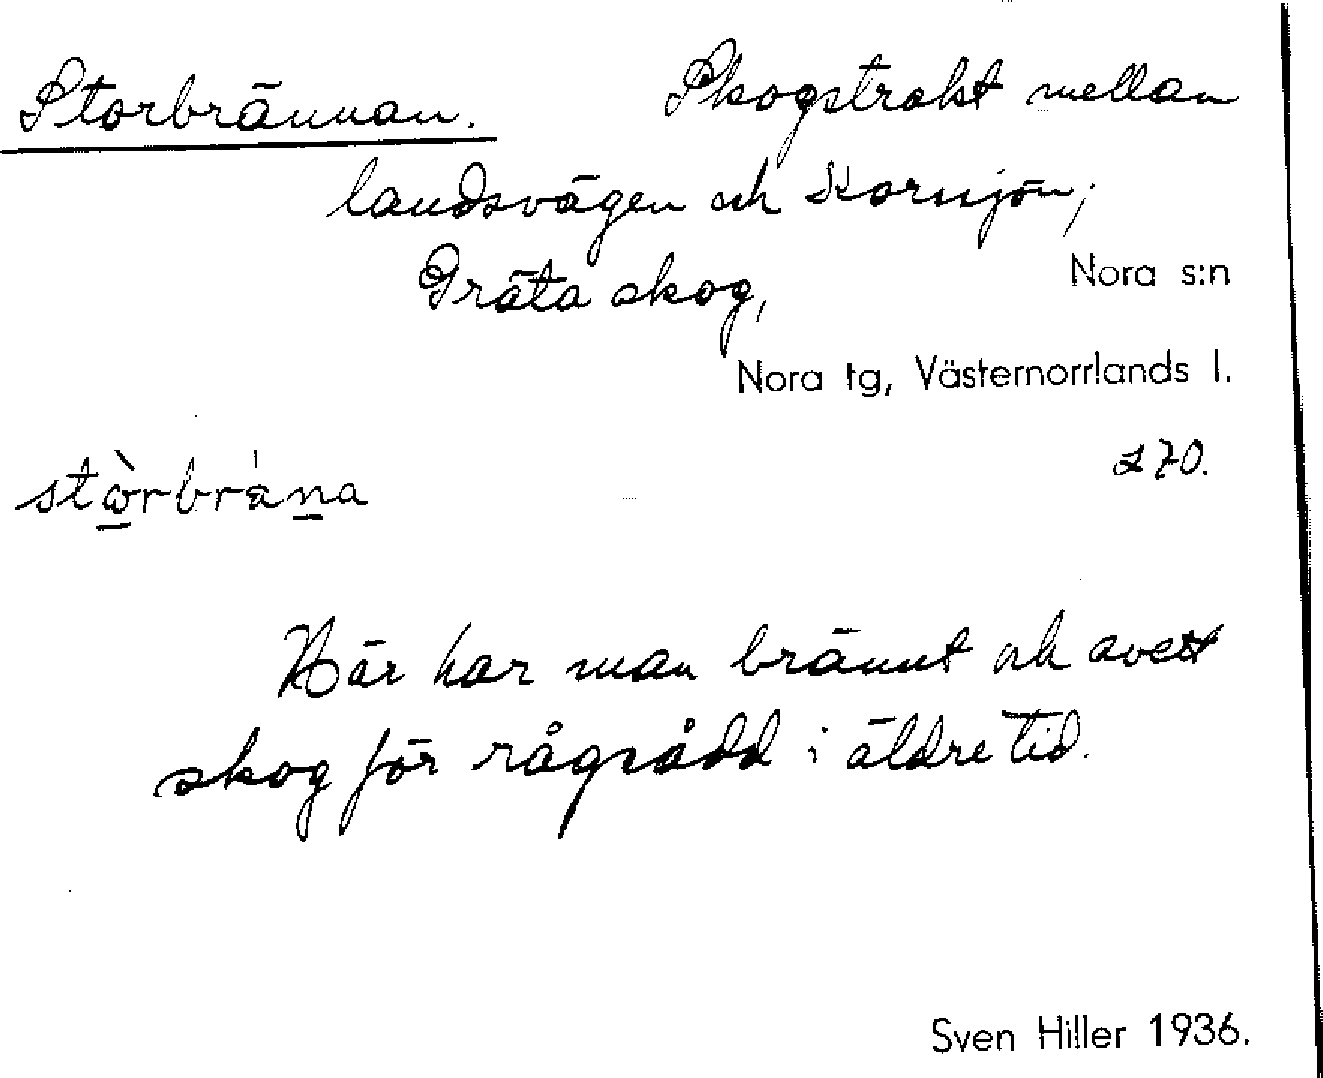 Storbrännan. Skogstrakt mellan
landsvägen och Storsjön;
Gräta skog, Nora s:n
Nora tg, Västernorrlands l.
270.
Här har man brännt och avett
skog för rågsådd i äldre tid.
Sven Hiller 1936.